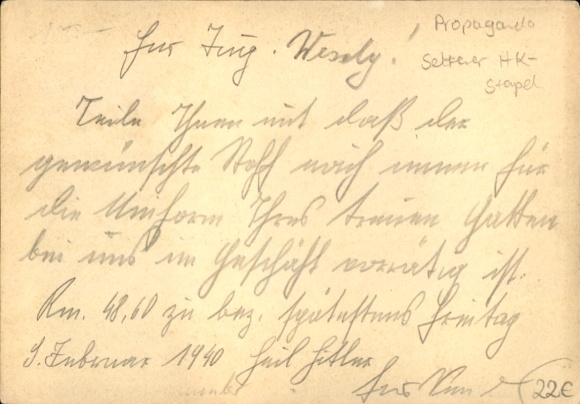 Propaganda
Seltener HK-
Stapel
Frau Ing. Wesely!
Teile Ihnen mit daß der
gewünschte Stoff noch immer für
die Uniform Ihres treuen Gatten
bei uns im Geschäft vorrätig ist.
Rm. 48,60 zu bez. spätestens Freitag
9. Februar 1940 Heil Hitler
22€